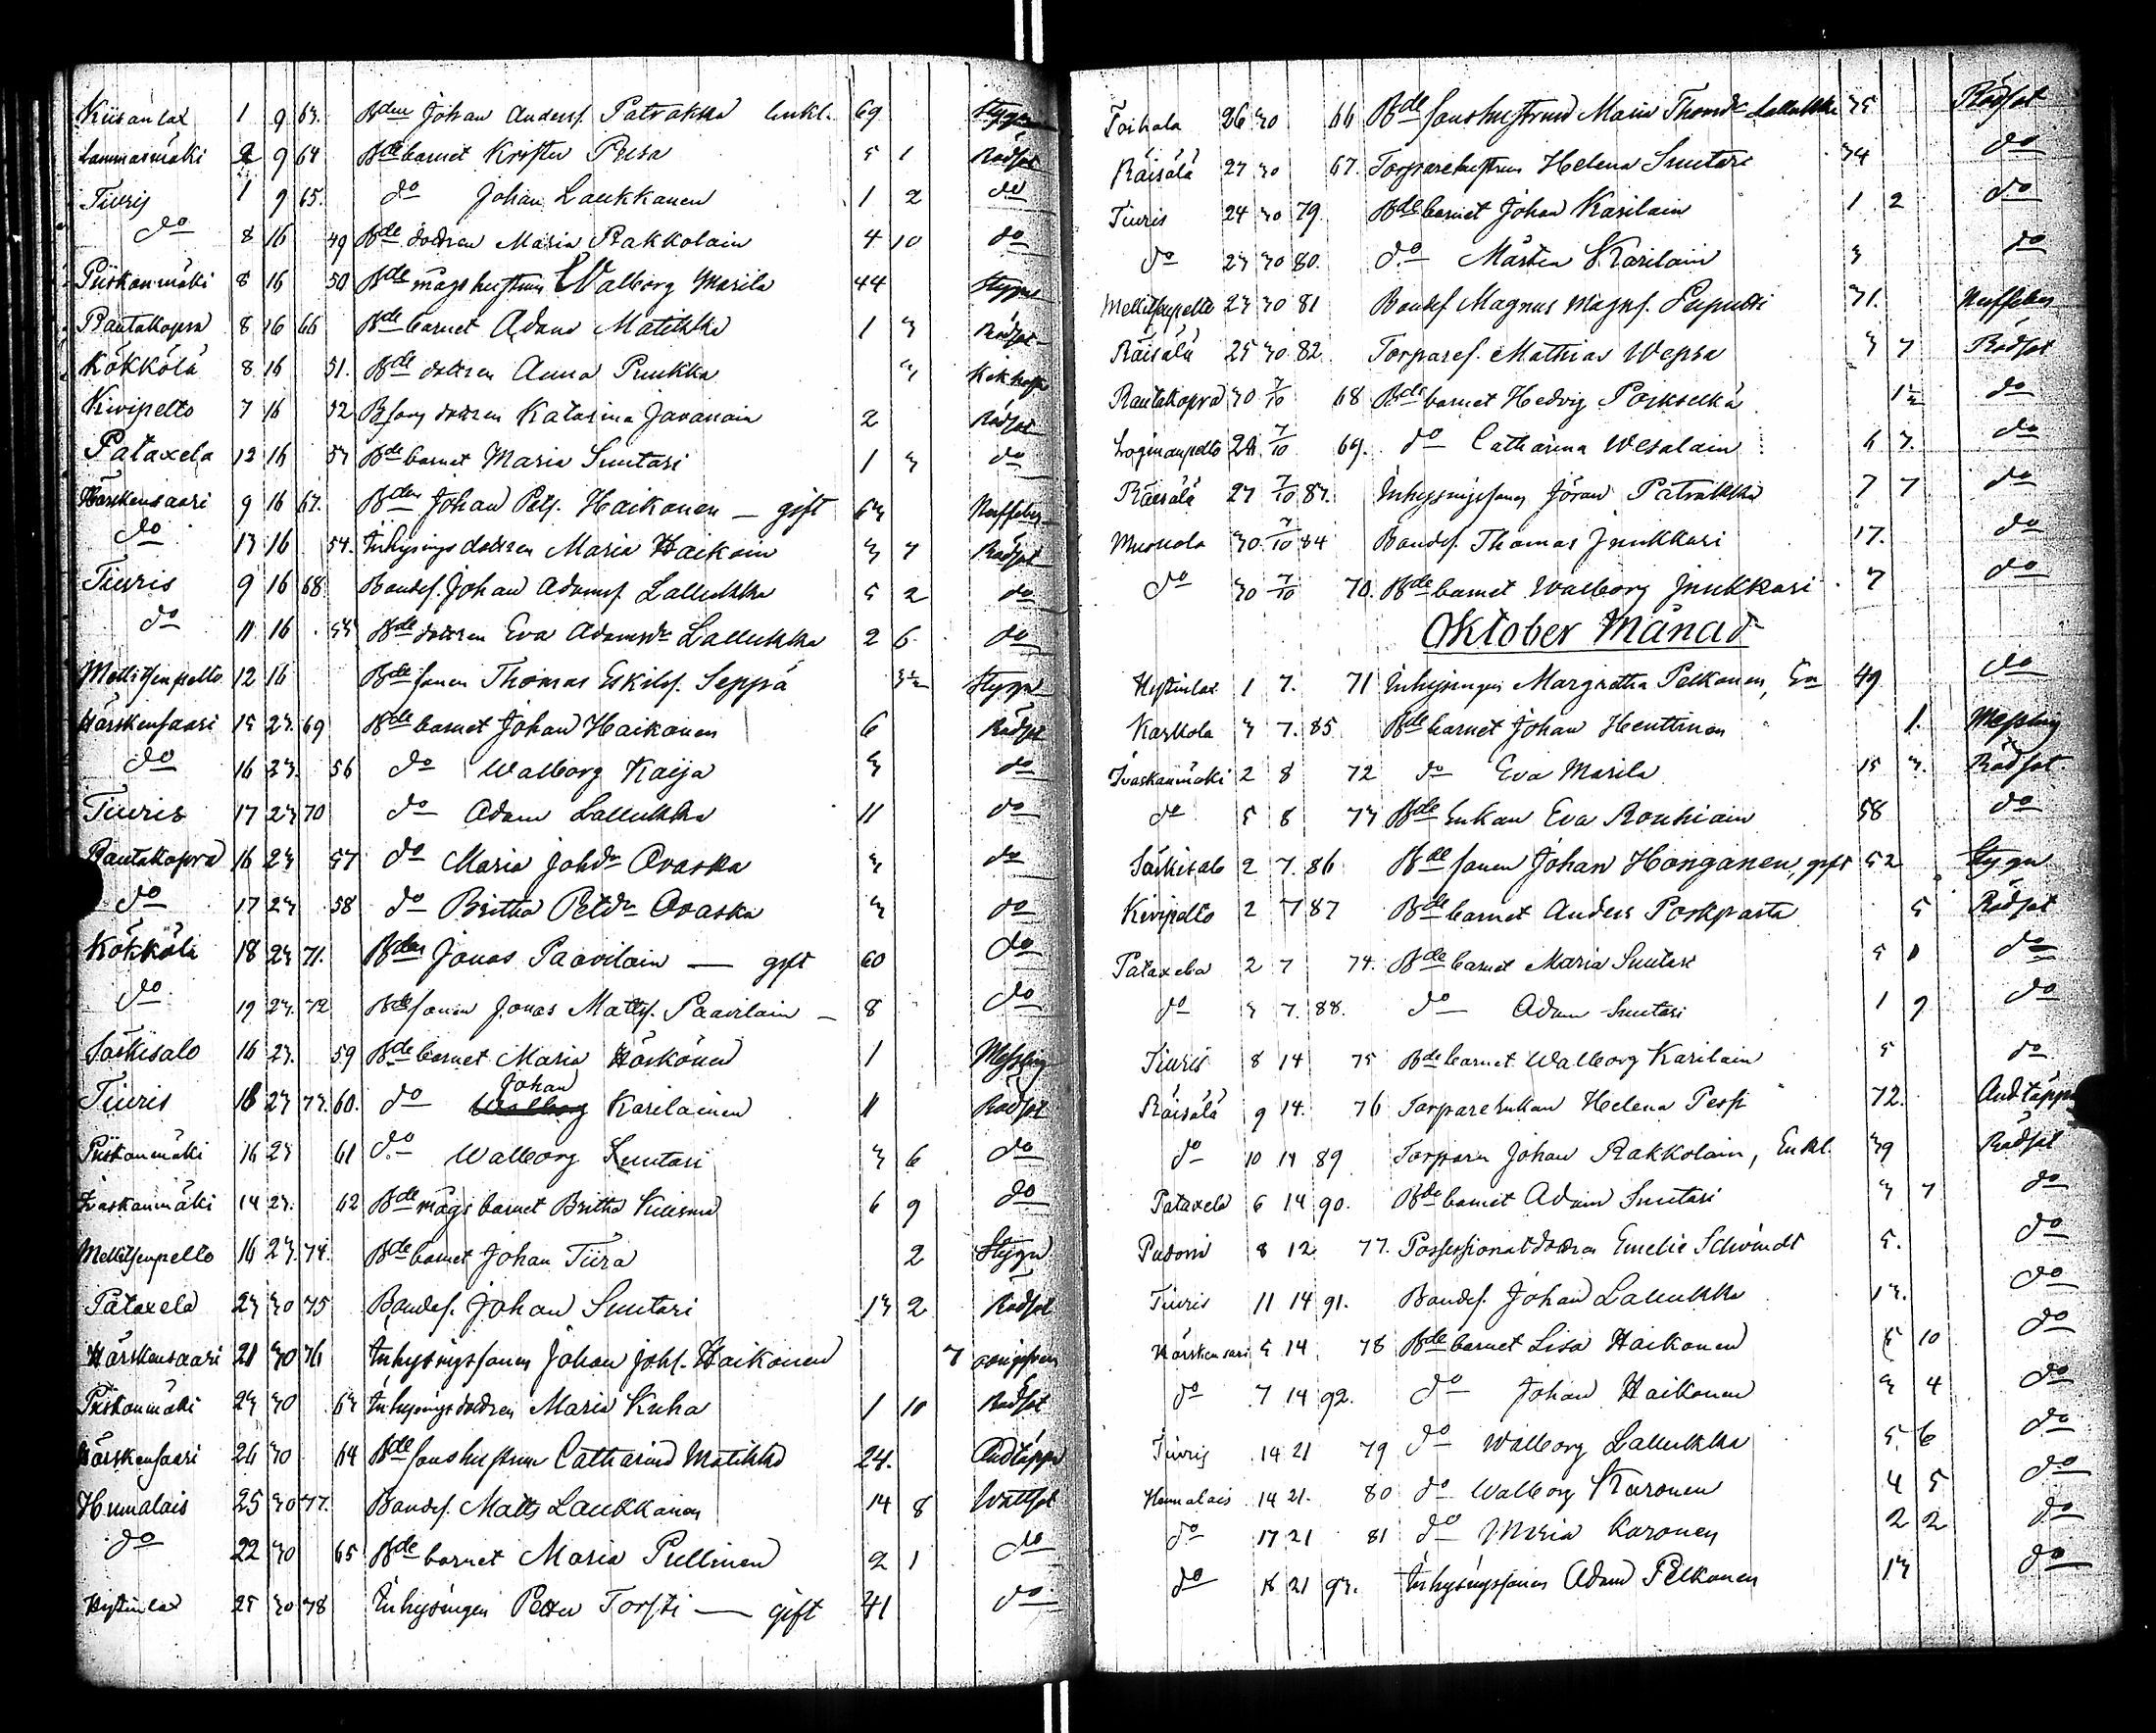 Kiisanlax 1 9 63. Bden Johan Anderss. Patrakka Enkl. 69 Stygn
Lammasmäki 2 9 64 Bde barnet Krister Pusa 5 1 Rödsot
Tiuris 1 9 65. do Johan Laukkanen 1 2 do
do 8 16 49 Bde dottren Maria Rakkolain 4 10 do
Piiskanmäki 8 16 50 Bde mågs hustrun Walborg Marila 44 Stygn
Rautakopra 8 16 66 Bde barnet Adam Matikka 1 3 Rödsot
Kökkölä 8 16 51. Bde dottren Anna Puukka 3 Kikhosta
Kivipelto 7 16 52 Bsons dottren Katarina Javanain 2 Rödsot
Pataxela 12 16 53 Bde barnet Maria Suutari 1 3 do
Härskensaari 9 16 67. Bden Johan Pets. Haikonen — gift 63
do 13 16 54. Inhysings dottren Maria Haikoin 3 7 Rödsot
Tiuris 9 16 68. Bondes. Johan Adamss. Lallukka 5 2 do
do 11 16 55 Bde dottren Eva Adamsdr Lallukka 2 6 do
Mellitsenpelto 12 16 Bde sonen Thomas Eskilss. Seppä 3½ Stygn
Härskensaari 15 23. 69 Bde barnet Johan Haikonen 6 Rödsot
do 16 23. 56 do Walborg Kaija 3 do
Tiuris 17 23 70 do Adam Lallukka 11 do
Rautakopra 16 23 57 do Maria Johdr Ovaska 3 do
do 17 23 58 do Britha Petdr Ovaska 3 do
Kökkölä 18 23 71. Bden Jonas Paavilain — gift 60 do
do 19 23. 72 Bde sonen Jonas Matts. Paavilain — 8 do
Särkisalo 16 23. 59 Bde barnet Maria Härkönen 1 Messling
Tiuris 16 23 73. 60. do Walborg Johan Karilainen 11 Rödsot
Piiskanmäki 16 23 61 do Walborg Suutari 3 6 do
Ivaskanmäki 14 23. 62 Bde mågs barnet Britha Kuisma 6 9 do
Mellitsenpelto 16 23. 74. Bde barnet Johan Tiira 2 Stygn
Pataxela 23 30 75 Bondes. Johan Suutari 13 2 Rödsot
Härskensaari 21 30 76 Inhysingssonen Johan Johs. Haikonen 7
Piiskanmäki 23 30 63 Inhysings dottren Maria Kuha 1 10 Rödsot
Härskensaari 26 30 64 Bde sonshustrun Catharina Matikka 24. Andtäppa
Humalais 25 30 77. Bondes. Matts Laukkanen 14 8 Wattsot
do 22 30 65 Bde barnet Maria Pullinen 2 1 do
Hytinlax 25 30 78 Inhysingen Petter Torsti — gift 41 do
Toihala 26 30 66 Bde sonshustrun Maria Thomdr Lallukka 35 Rödsot
Räisälä 27 30 67. Torparehustrun Helena Suutari 34 do
Tiuris 24 30 79. Bde barnet Johan Karilain 1 2 do
do 23 30 80. do Mårten Karilain 3 do
Mellitsenpelto 23 30 81 Bondes. Magnus Magns. 31.
Räisälä 25 30. 82. Torpares. Mathias Wepsa 3 7 Rödsot
Rautakopra 30 7/10 68 Bde barnet Hedvig Poikselkä 1½ do
Loginanpelto 7/10 69. do Catharina Wesalain 6 7. do
Räisälä 27 7/10 83. Inhysingssonen Jöran Patrakka 7 7 do
Muskola 30. 7/10 84 Bondes. Thomas Junkkari 17. do
do 30 7/10 70. Bde barnet Walborg Junkkari 7 do
Oktober Månad
Hytinlax 1 7. 71 Inhysingen Margretha Pelkonen, En 49 do
Karkola 3 7. 85 Bde barnet Johan Henttinen 1. Messling
Ivaskanmäki 2 8 72 do Eva Marila 15 3. Rödsot
do 5 8 73 Bde Enkan Eva Rouhiain 58 do
Särkisalo 2 7. 86 Bde sonen Johan Honganen, gift 52 Stygn
Kivipelto 2 7 87 Bde barnet Anders Porkpasta 5 Rödsot
Pataxela 2 7 74. Bde barnet Maria Suutari 5 do
do 3 7. 88. do Adam Suutari 1 9 do
Tiuris 8 14 75 Bde barnet Walborg Karilain 5 do
Räisälä 9 14. 76 Torpareenkan Helena Pessi 72. Andtäppa
do 10 14 89 Torparn Johan Rakkolain, Enkl. 39 Rödsot
Pataxela 6 14 90. Bde barnet Adam Suutari 3 7 do
Pudorri 8 12 77. Possessionatdottren Emelie Schvindt 5. do
Tiuris 11 14 91. Bondes. Johan Lallukka 13. do
Härskensari 5 14 78 Bde barnet Lisa Haikonen 5 10 do
do 7 14 92. do Johan Haikonen 3 4 do
Tiuris 14 21 79 do Walborg Lallukka 5. 6 do
Humalais 14 21. 80 do Walborg Karonen 4 5 do
do 17 21 81 do Maria Karonen 2 2 do
do 18 21 93. Inhysingssonen Adam Pelkonen 13 do